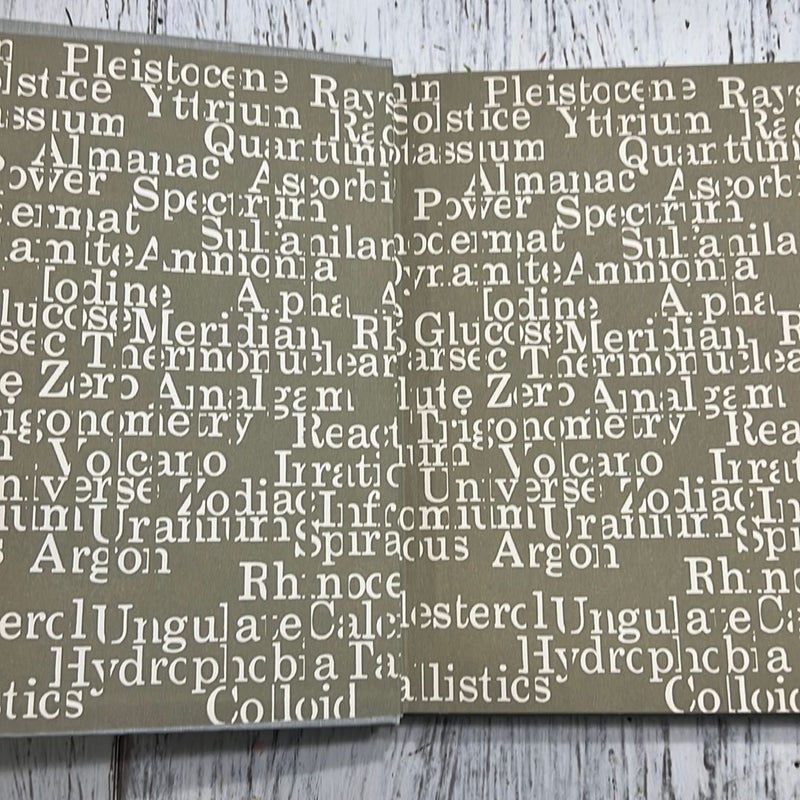 Pleistocene Rays
Solstice Yttrium
assium Quantum
Almanac Ascorbi
Power Spectrum
ermat Sulfanilam
amite Ammonia
Iodine Alpha
Glucose Meridian Rh
sec Thermonuclear
te Zero Amalgam
rigonometry React
Volcano Irratio
Universe Zodiac Infr
ium Uranium Spira
s Argon
Rhinoce
erol Ungulate Calc
Hydrophobia Ta
stics Colloid
Pleistocene Rays
Solstice Yttrium
tassium Quantum
Almanac Ascorbi
Power Spectrum
ocermat Sulfanila
yramite Ammonia
Iodine Alpha
Glucose Meridian R
arsec Thermonuclea
lute Zero Amalgam
Trigonometry Reac
ium Volcano Irrat
Universe Zodiac In
omium Uranium Spir
ous Argon
Rhino
lesterol Ungulate Ca
Hydrophobia
allistics Colloid